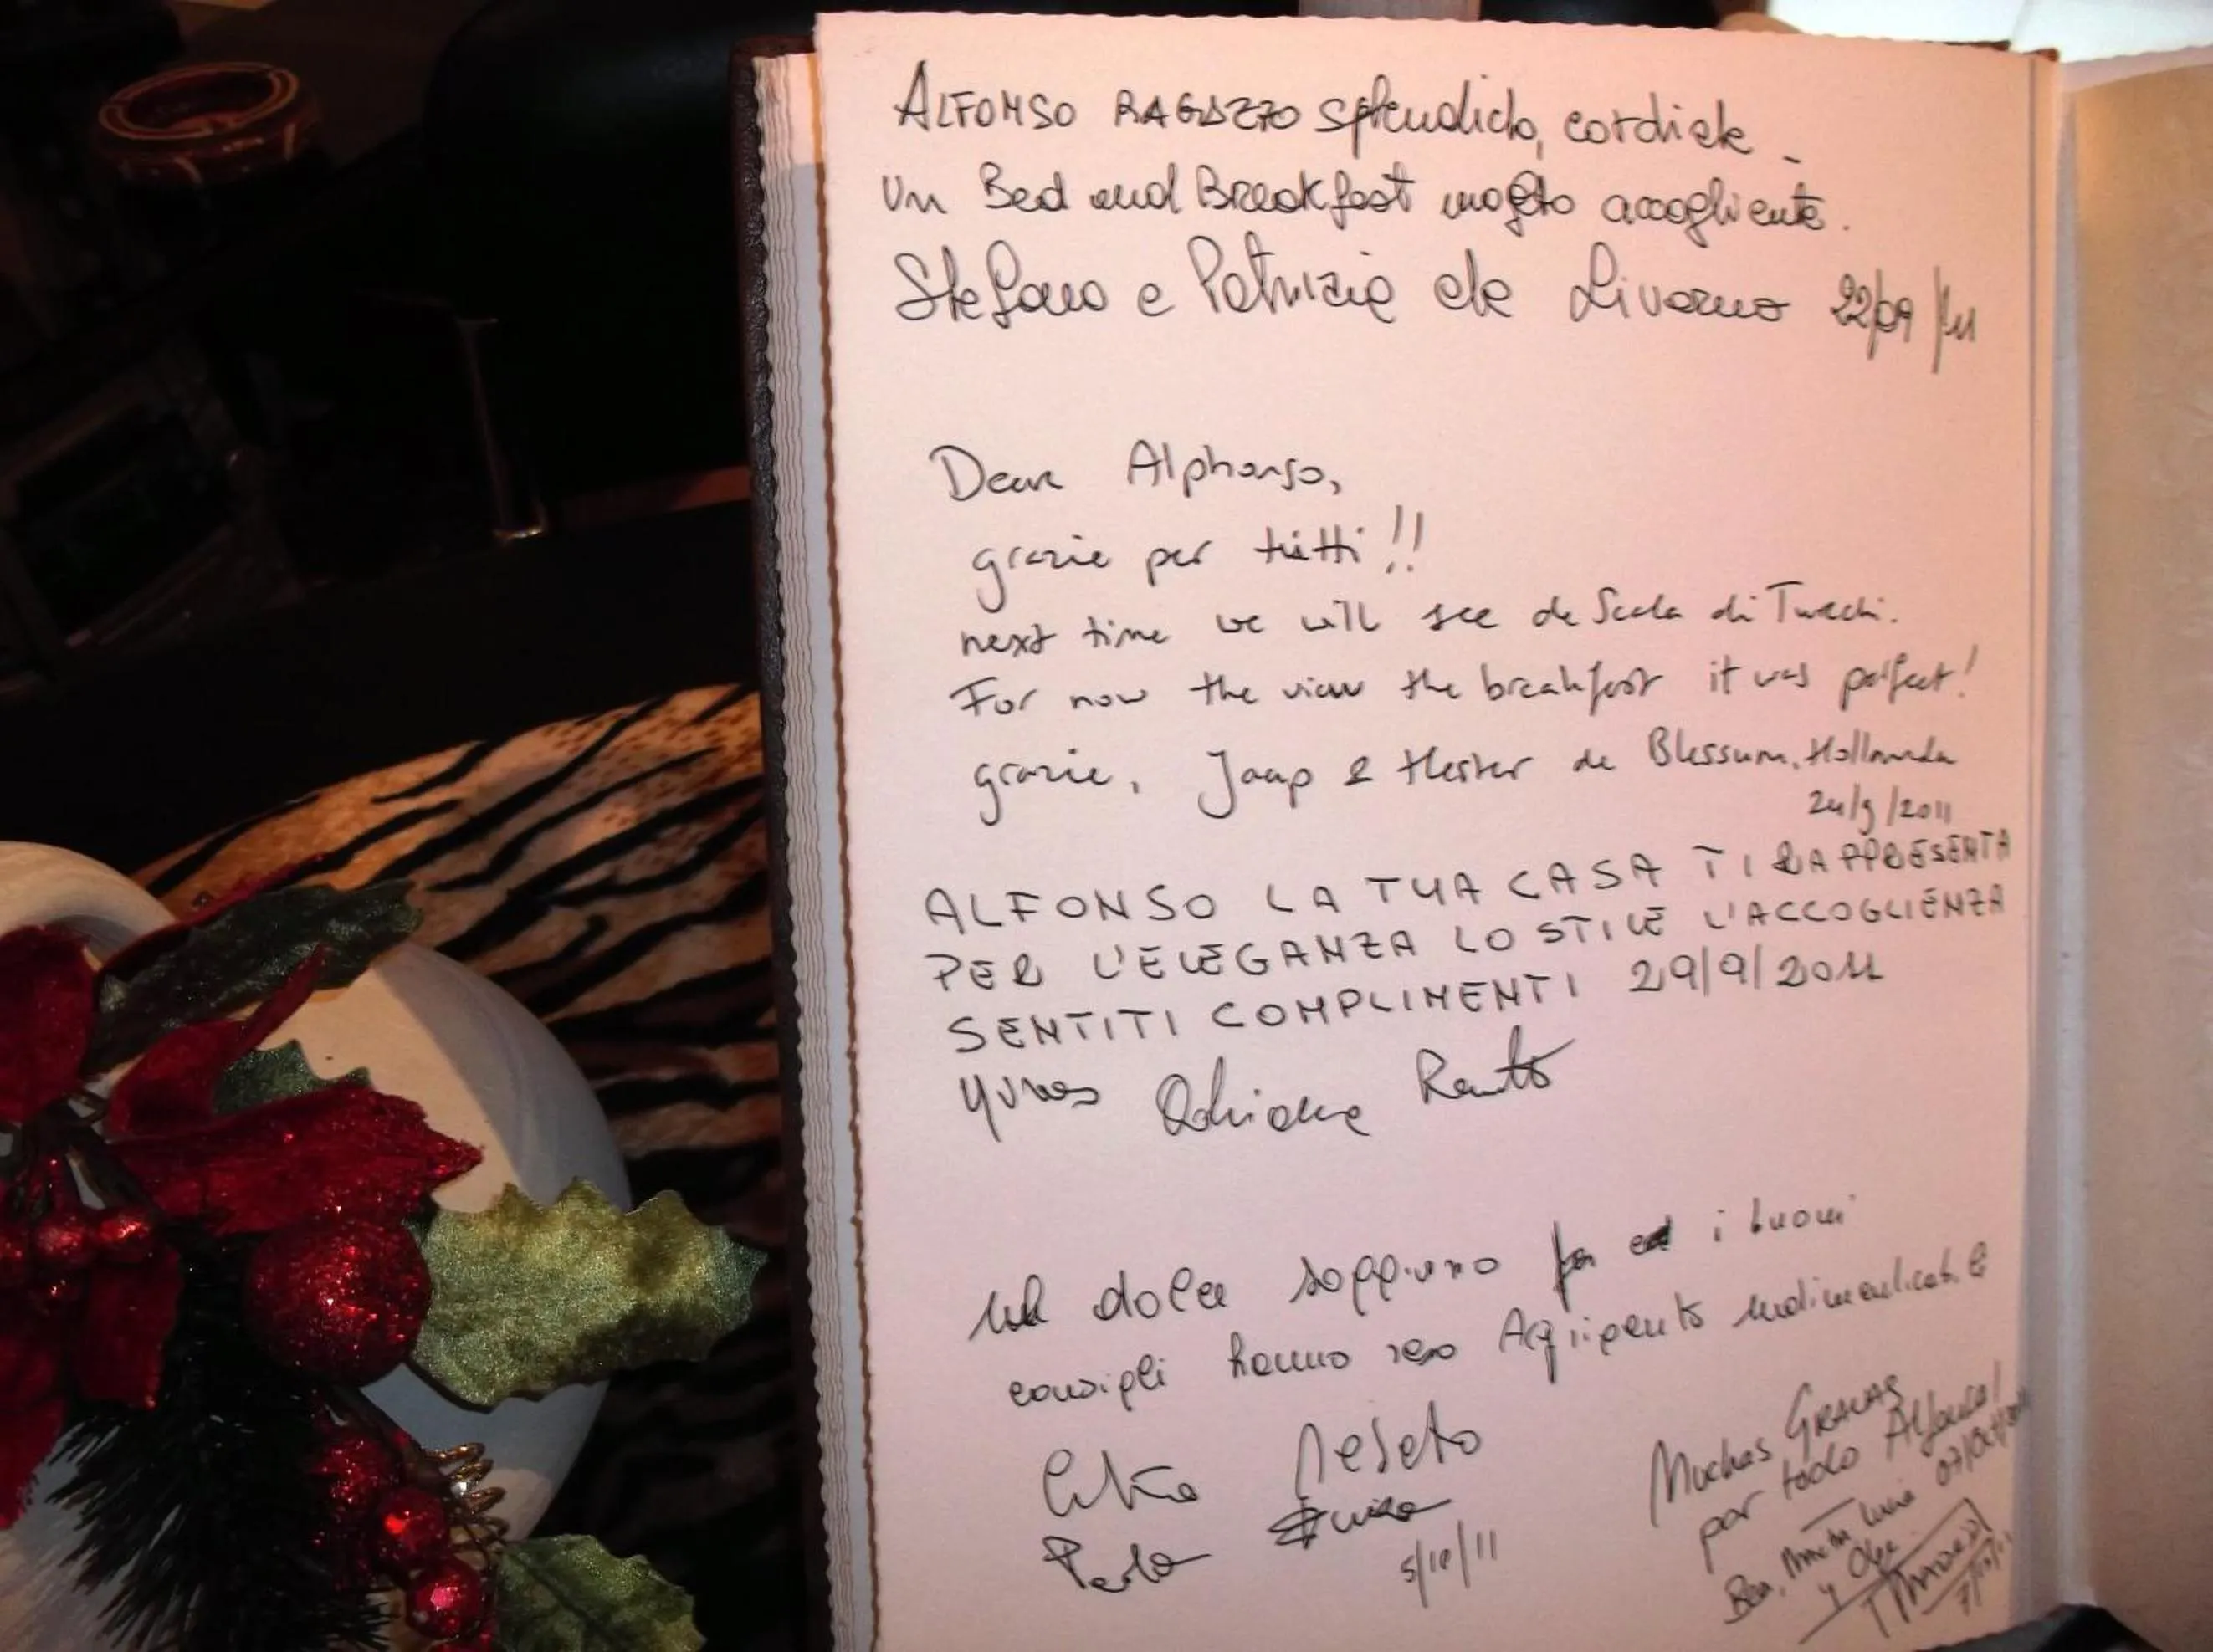 ALFONSO RAGAZZO splendido, cordiale -
un Bed and Breakfast molto accogliente.
Stefano e Patrizia da Livorno 22/09/11
Dear Alphonso,
grazie per tutti!!
next time we will see de Scala di Turchi.
For now the view the breakfast it was perfect!
grazie, Jaap & Hester de Blessum, Hollanda
24/9/2011
ALFONSO LA TUA CASA TI RAPPRESENTA
PER L'ELEGANZA LO STILE L'ACCOGLIENZA
SENTITI COMPLIMENTI 29/9/2011
Adriana Renato
dolce soggiorno i buoni
consigli hanno reso Agrigento indimenticabile
Paola
5/10/11
Muchas GRACIAS
por todo Alfonso!
Bea, Lucia 07/Oct/2011
y
MADRID
7/10/11